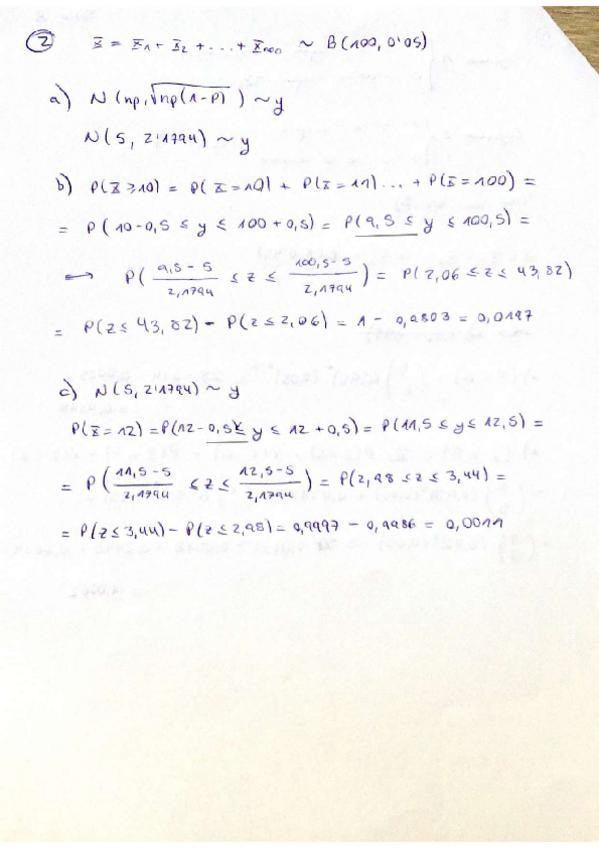 ② X = X1 + X2 + ... + X100 ~ B(100, 0'05)
a) N(np, √np(1-p)) ~ y
N(5, 2'1794) ~ y
b) P(X ≥ 10) = P(X = 10) + P(X = 11) ... + P(X = 100) =
= P(10-0,5 ≤ y ≤ 100+0,5) = P(9,5 ≤ y ≤ 100,5) =
→ P((9,5-5)/2,1794 ≤ z ≤ (100,5-5)/2,1794) = P(2,06 ≤ z ≤ 43,82)
= P(z ≤ 43,82) - P(z ≤ 2,06) = 1 - 0,9803 = 0,0197
c) N(5, 2'1794) ~ y
P(X = 12) = P(12-0,5 ≤ y ≤ 12+0,5) = P(11,5 ≤ y ≤ 12,5) =
= P((11,5-5)/2,1794 ≤ z ≤ (12,5-5)/2,1794) = P(2,98 ≤ z ≤ 3,44) =
= P(z ≤ 3,44) - P(z ≤ 2,98) = 0,9997 - 0,9986 = 0,0011